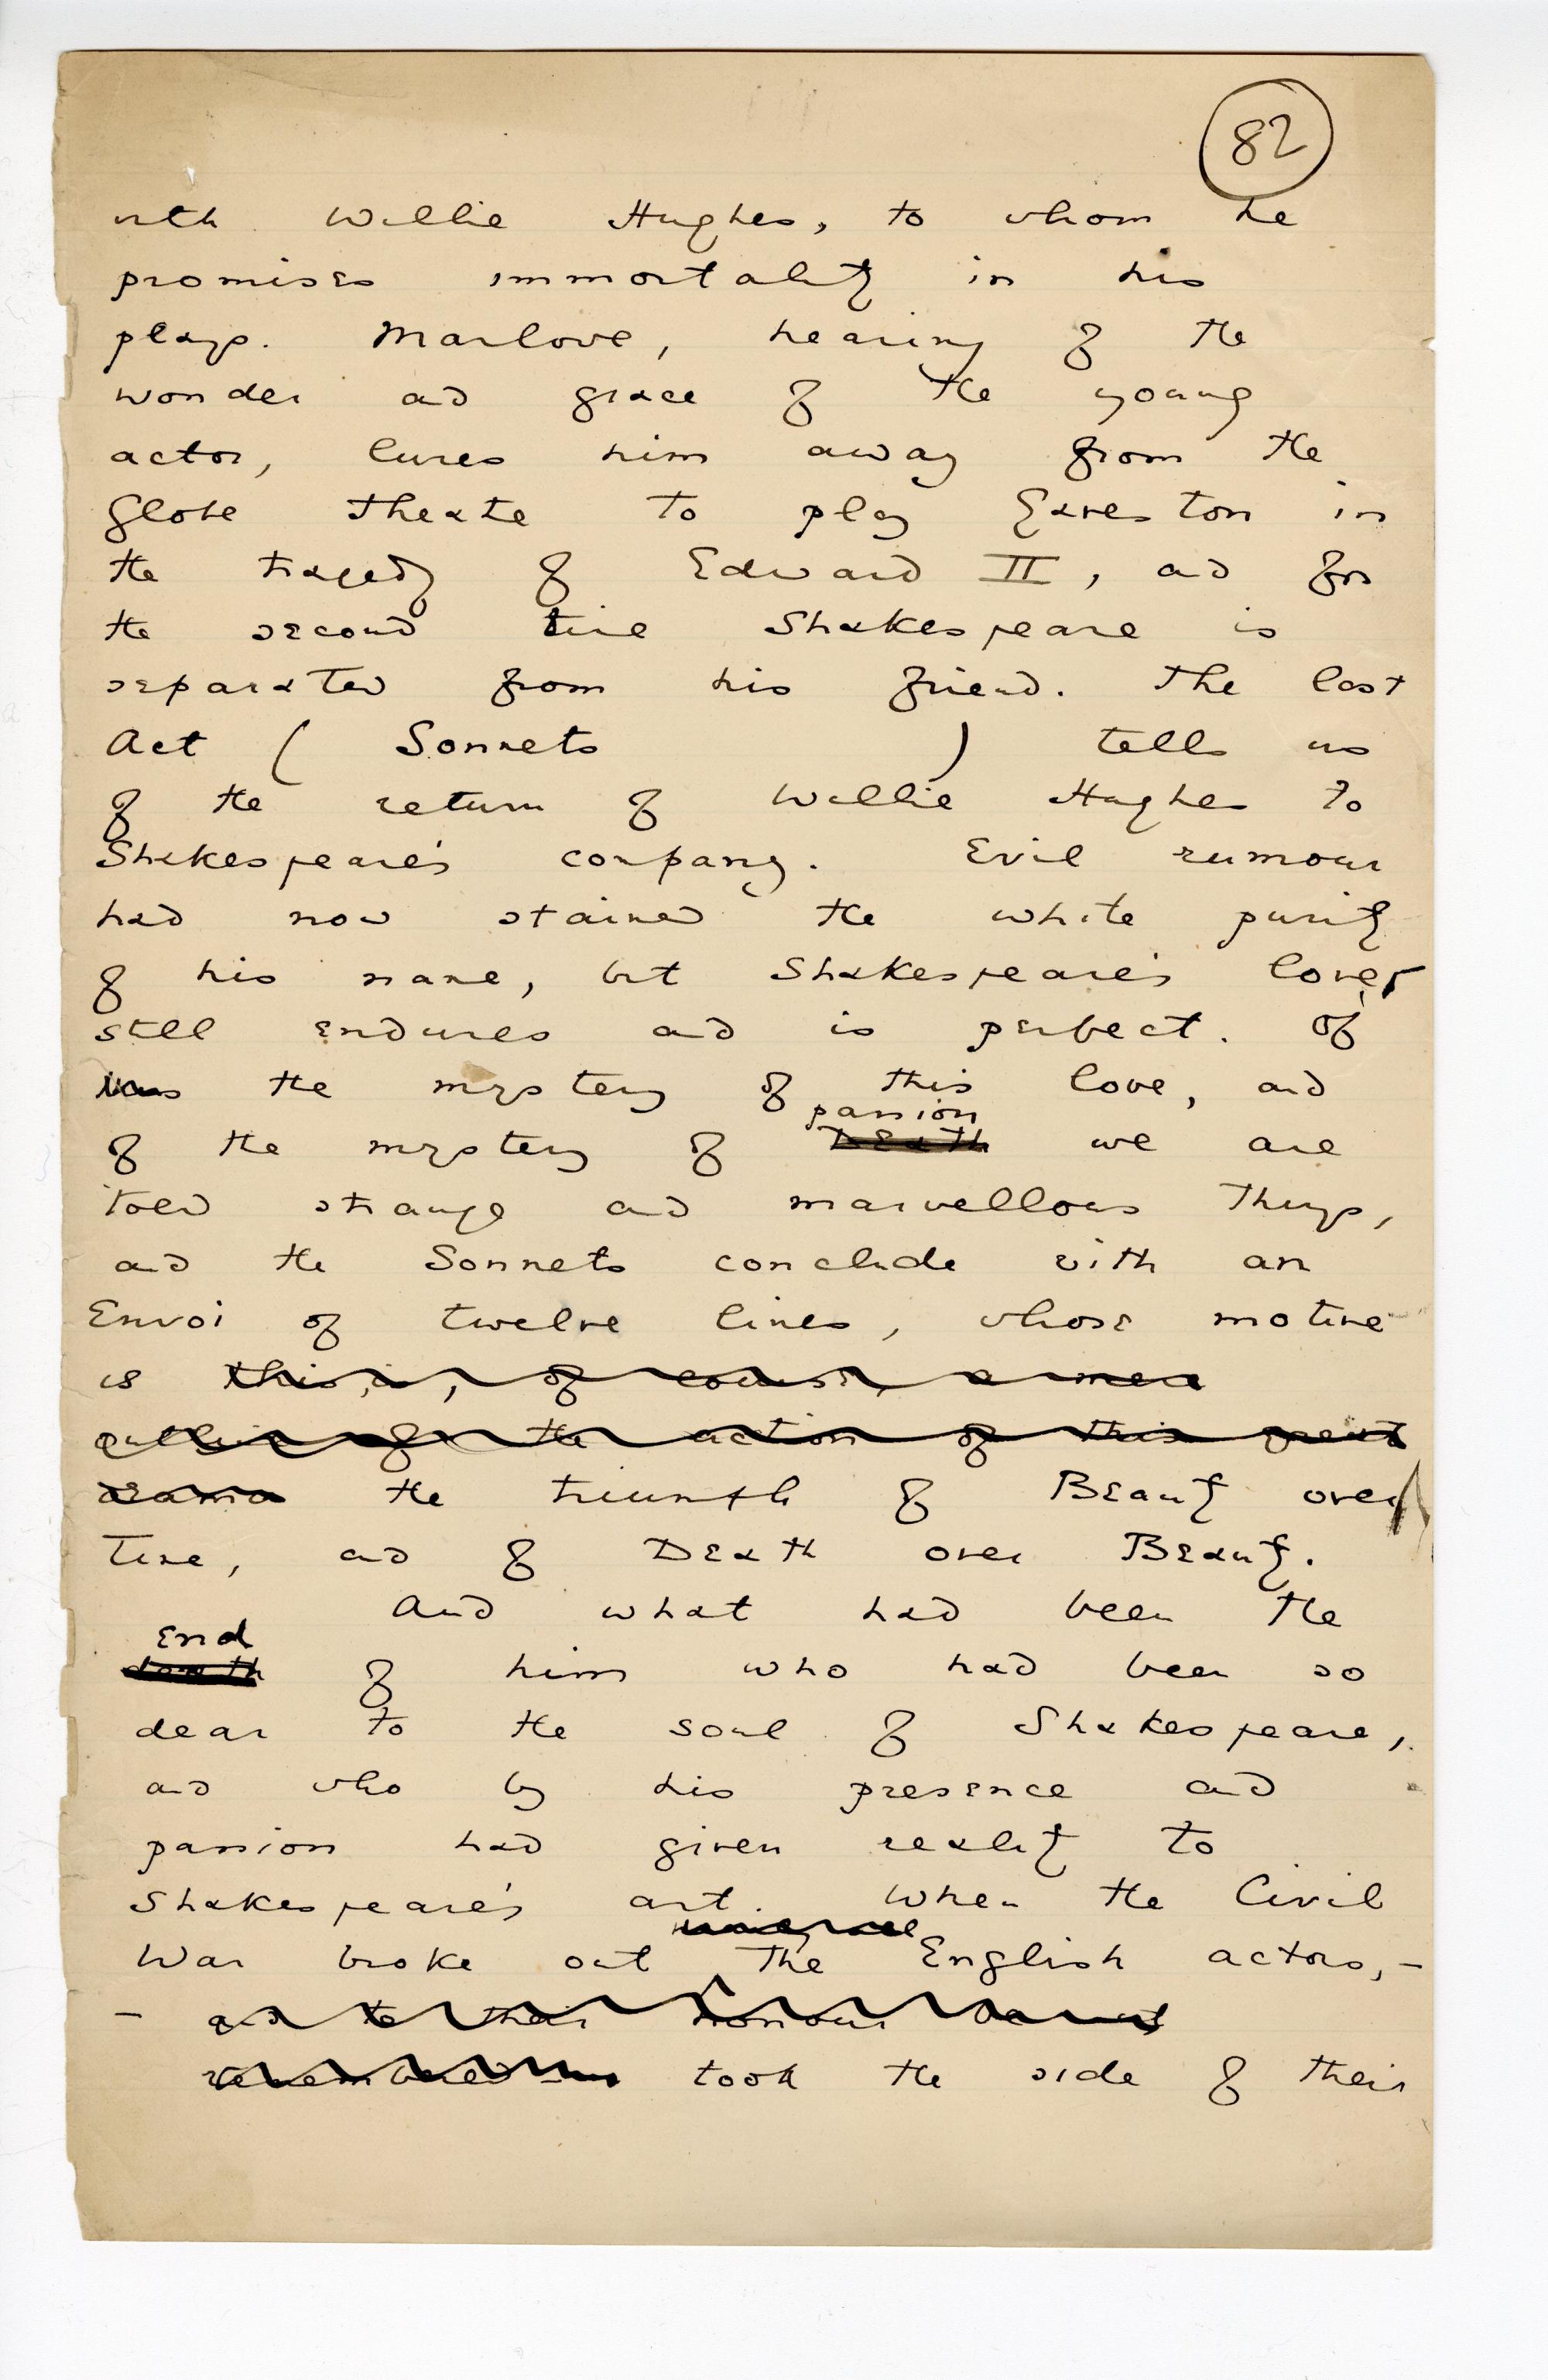 82
with Willie Hughes, to whom he
promises immortality in his
plays. Marlowe, hearing of the
wonder and grace of the young
actor, lures him away from the
Globe Theatre to play Gaveston in
the tragedy of Edward II, and for
the second time Shakespeare is
separated from his friend. The last
Act ( Sonnets ) tells us
of the return of Willie Hughes to
Shakespeare's company. Evil rumour
had now stained the white purity
of his name, but Shakespeare's love
still endures and is perfect. Of
the mystery of this love, and
passion
of the mystery of Death we are
told strange and marvellous things,
and the Sonnets conclude with an
Envoi of twelve lines, whose motive
is this, is, of course, a mere
outline of the action of this great
drama the triumph of Beauty over
Time, and of Death over Beauty.
And what had been the
End
death of him who had been so
dear to the soul of Shakespeare,
and who by his presence and
passion had given reality to
Shakespeare's art. When the Civil
War broke out the English actors,-
- and to their honour be it
remembered - took the side of their